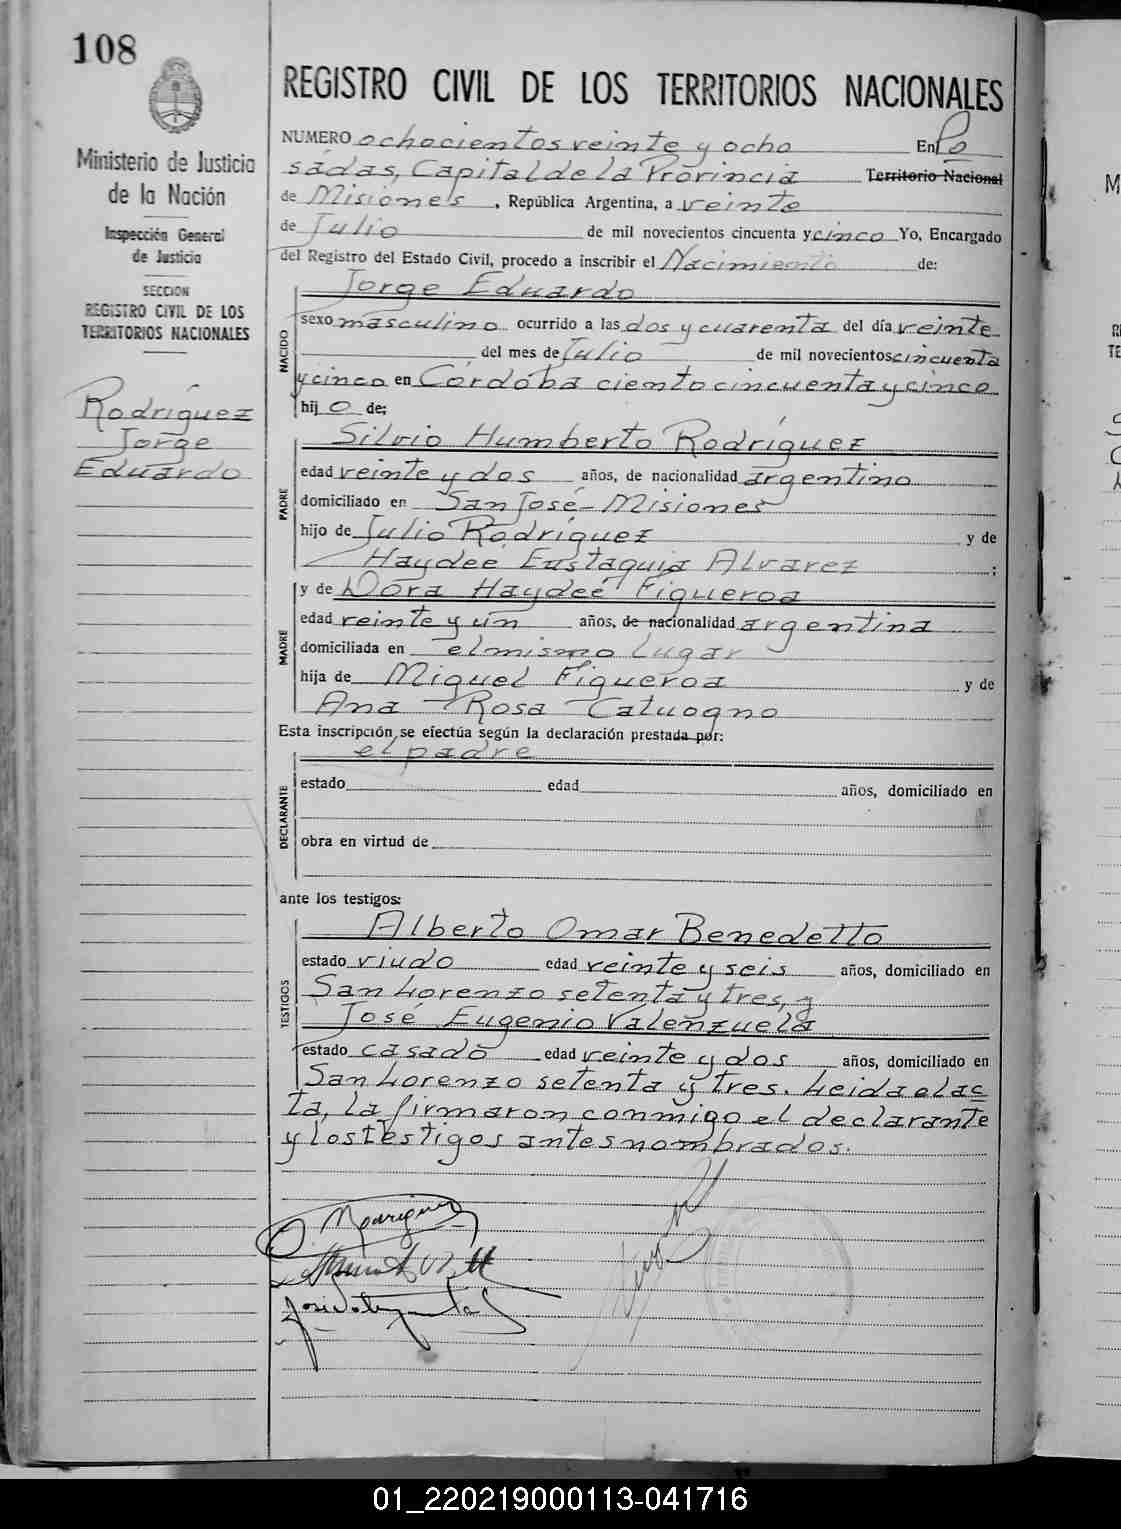 108
Ministerio de Justicia
de la Nación
Inspección General
de Justicia
SECCION
REGISTRO CIVIL DE LOS
TERRITORIOS NACIONALES
Rodríguez
Jorge
Eduardo
REGISTRO CIVIL DE LOS TERRITORIOS NACIONALES
NUMERO ochocientos veinte y ocho En Po
sadas, Capital de la Provincia Territorio Nacional
de Misiones, República Argentina, a veinte
de Julio de mil novecientos cincuenta y cinco Yo, Encargado
del Registro del Estado Civil, procedo a inscribir el Nacimiento de:
Jorge Eduardo
NACIDO
sexo masculino ocurrido a las dos y cuarenta del día veinte
del mes de Julio de mil novecientos cincuenta
y cinco en Córdoba ciento cincuenta y cinco
hijo de:
Silvio Humberto Rodríguez
PADRE
edad veinte y dos años, de nacionalidad argentino
domiciliado en San José - Misiones
hijo de Julio Rodríguez y de
Haydée Eustaquia Alvarez;
y de Dora Haydeé Figueroa
MADRE
edad veinte y un años, de nacionalidad argentina
domiciliada en el mismo lugar
hija de Miguel Figueroa y de
Ana Rosa Catuogno
Esta inscripción se efectúa según la declaración prestada por:
el padre
DECLARANTE
estado edad años, domiciliado en
obra en virtud de
ante los testigos:
Alberto Omar Benedetto
TESTIGOS
estado viudo edad veinte y seis años, domiciliado en
San Lorenzo setenta y tres, y
José Eugenio Valenzuela
estado casado edad veinte y dos años, domiciliado en
San Lorenzo setenta y tres. Leida el ac
ta, la firmaron conmigo el declarante
y los testigos antes nombrados.
Rodriguez
01_220219000113-041716